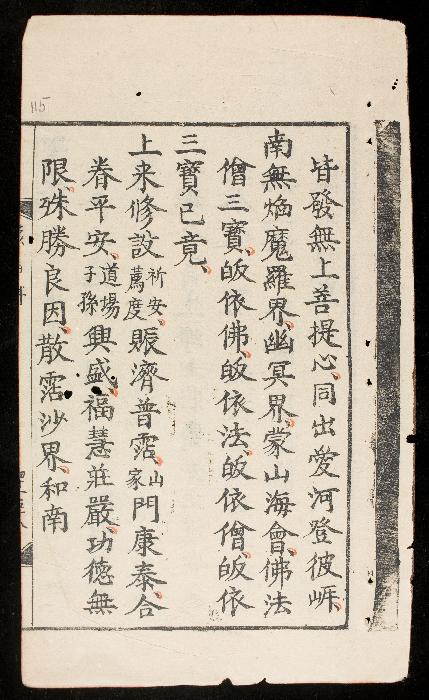 皆發無上菩提心同出愛河登彼岸
南無焰魔羅界幽冥界蒙山海會佛法
僧三寶皈依佛皈依法皈依僧皈依
三寶已竟
上来修設祈安薦度賑濟普霑山家門康泰合
眷平安道場子孫興盛福慧莊嚴功德無
限殊勝良因散霑沙界和南
115